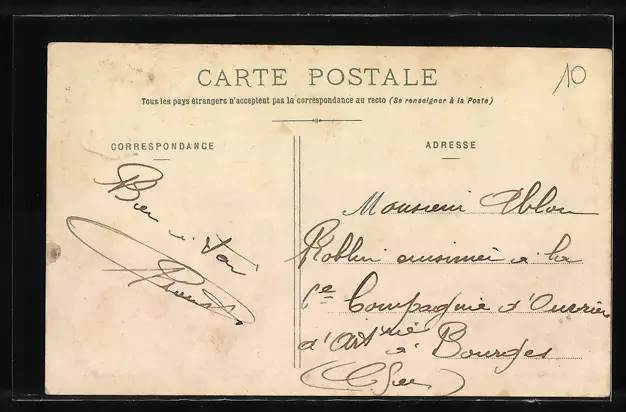 10
CARTE POSTALE
Tous les pays étrangers n'acceptent pas la correspondance au recto (Se renseigner à la Poste)
CORRESPONDANCE
ADRESSE
Bien à toi
Monsieur
Roblin cuisinier à la
6e Compagnie d'Ouvrier
d'Artrie à Bourges
(Cher)